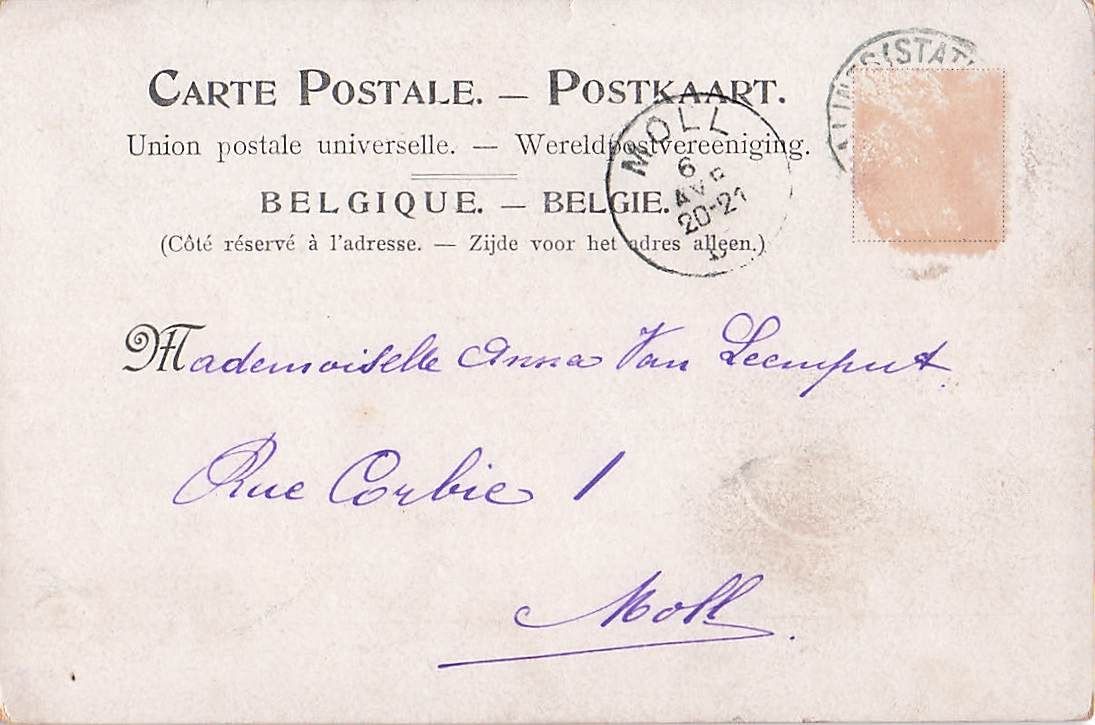 CARTE POSTALE. — POSTKAART.
Union postale universelle. — Wereldpostvereeniging.
BELGIQUE. — BELGIE.
(Côté réservé à l'adresse. — Zijde voor het adres alleen.)
(STAT
MOLL
6
AVR
20-21
Mademoiselle Anna Van Leemput.
Rue Corbie 1
Moll.